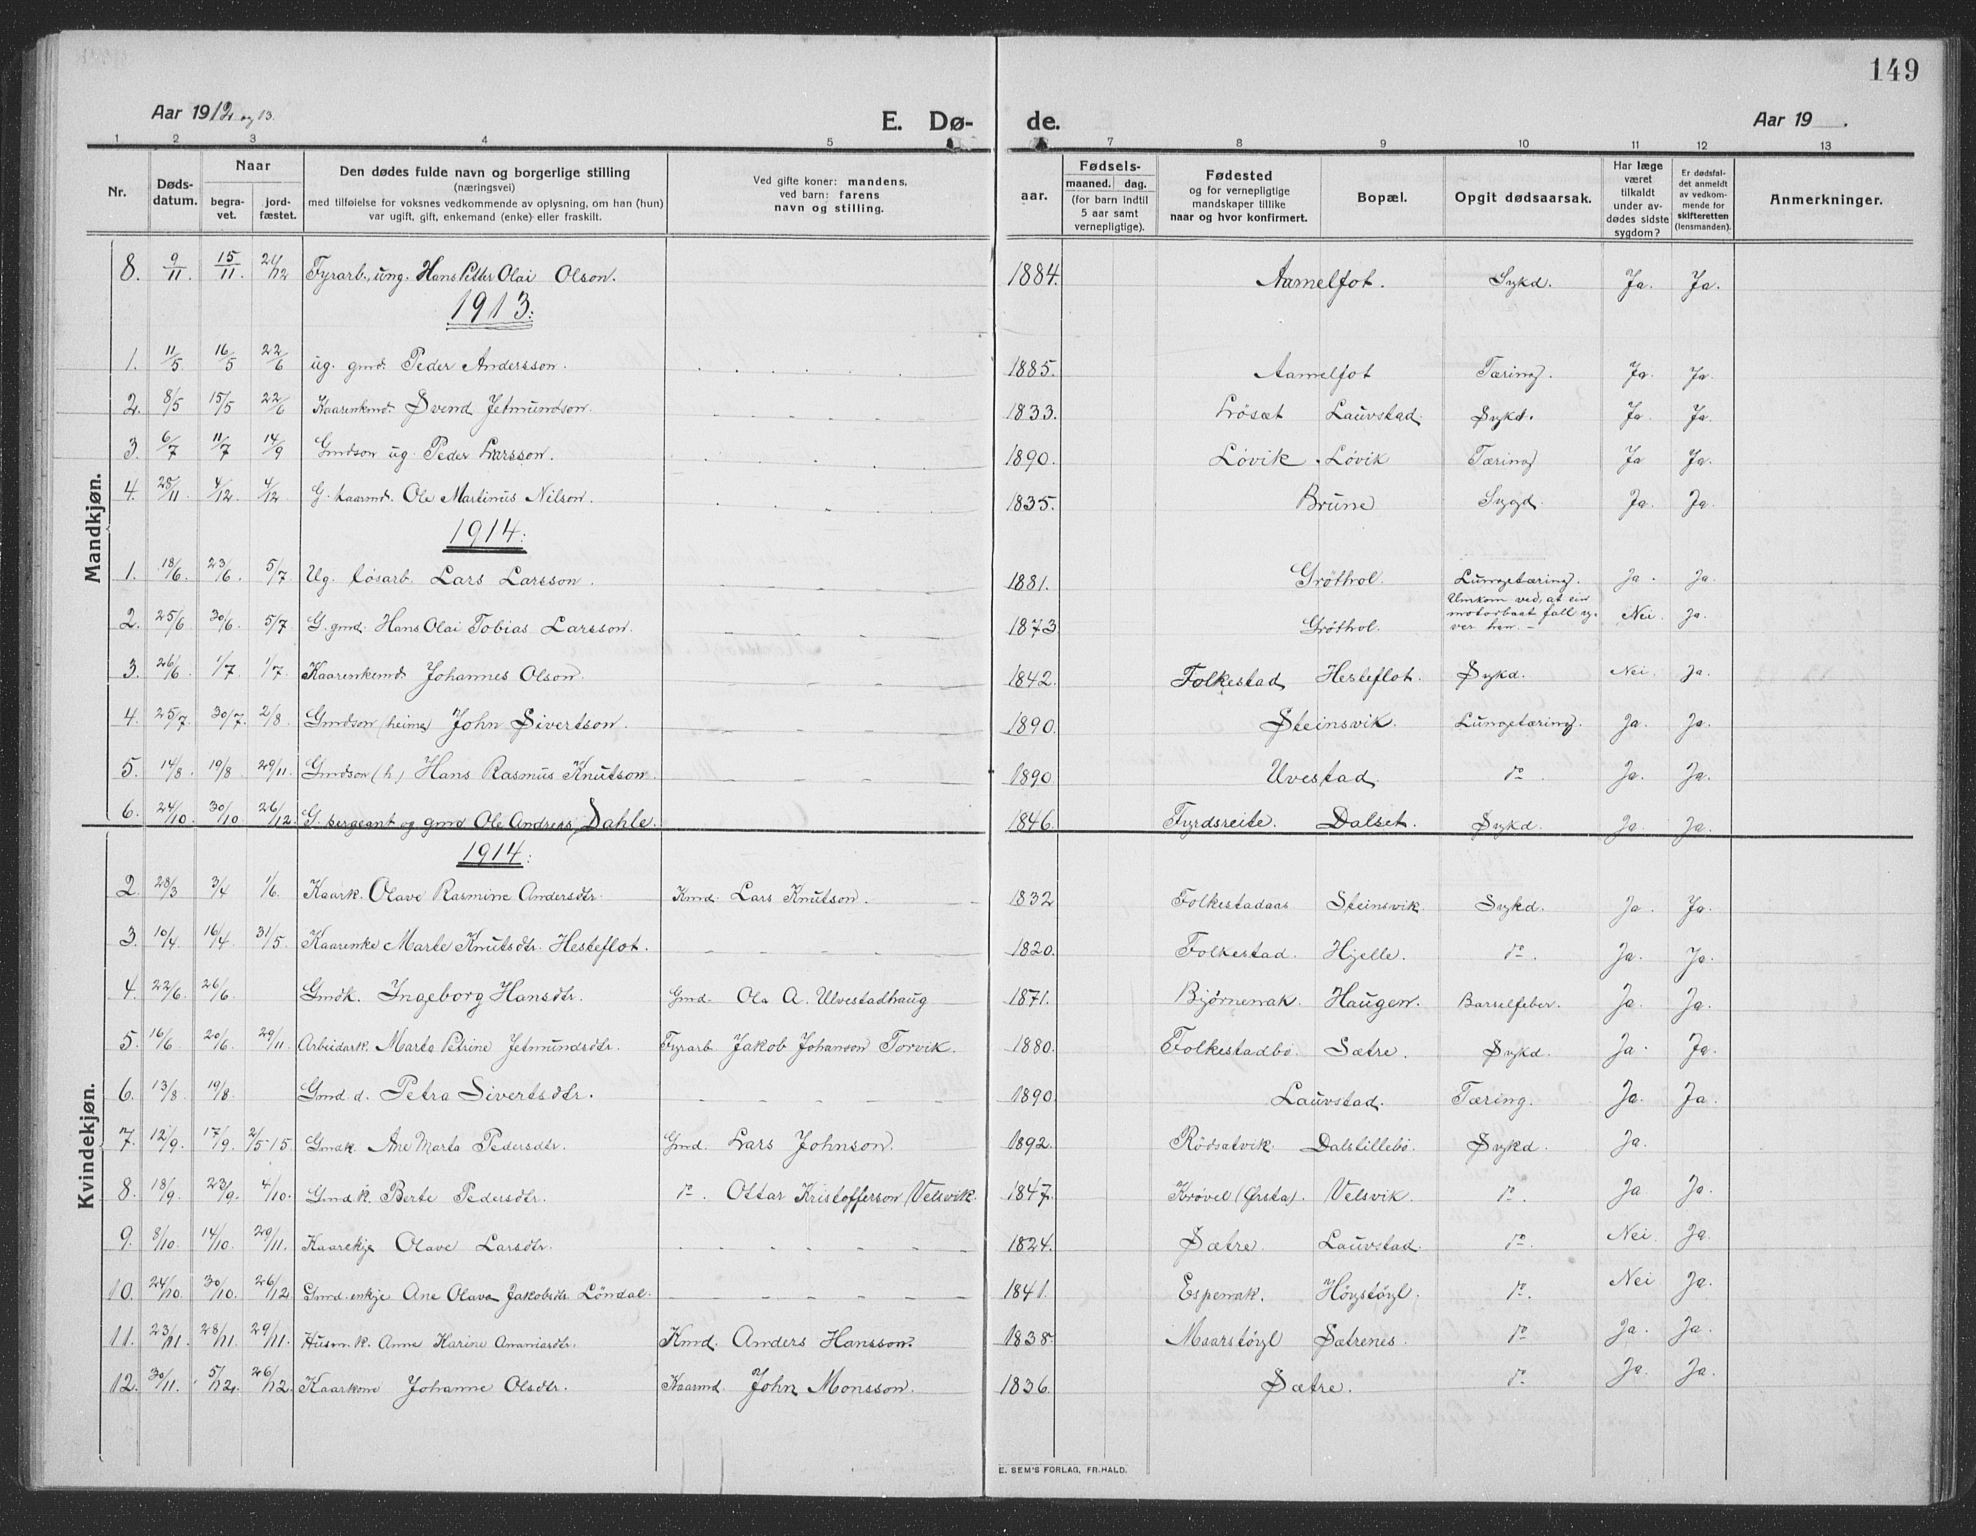 149
Aar 1912 og 13.
E. Dø- de.
Aar 19 .
1 2 3 4 5 7 8 9 10 11 12 13
Nr.
Døds-
datum.
Naar
begra-
vet.
jord-
fæstet.
Den dødes fulde navn og borgerlige stilling
(næringsvei)
med tilføielse for voksnes vedkommende av oplysning, om han (hun)
var ugift, gift, enkemand (enke) eller fraskilt.
Ved gifte koner: mandens,
ved barn: farens
navn og stilling.
aar.
Fødsels-
maaned. dag.
(for barn indtil
5 aar samt
vernepligtige).
Fødested
og for vernepligtige
mandskaper tillike
naar og hvor konfirmert.
Bopæl.
Opgit dødsaarsak.
Har læge
været
tilkaldt
under av-
dødes sidste
sygdom?
Er dødsfal-
det anmeldt
av vedkom-
mende for
skifteretten
(lensmanden).
Anmerkninger.
Mandkjøn.
8. 9/11 15/11 26/12 Fyrarb. ung. Hans Petter Olai Olson. 1884. Aamelfot. Sykd. Ja. Ja.
1913:
1. 11/5 16/5 22/6 ug. gmd. Peder Andersson. 1885. Aamelfot Tæring. Ja. Ja.
2. 8/5 15/5 22/6 Kaarenkmd. Svend Jetmundson. 1833. Løsæt Lauvstad. Sykd. Ja. Ja.
3. 6/7 11/7 14/9 Gmdson ug. Peder Larsson. 1890. Løvik Løvik Tæring Ja Ja.
4. 28/11 4/12 4/12 G. kaarmd. Ole Martinus Nilson. 1835. Brune Sygd. Ja. Ja.
1914:
1. 18/6 23/6 5/7 Ug. løsarb. Lars Larsson. 1881. Grøthol. Lungetæring. Ja. Ja.
2. 25/6 30/6 5/7 G. gmd. Hans Olai Tobias Larsson. 1873 Grøthol. Umkom ved, at ein
motorbaat fall y-
ver han. - Nei. Ja.
3. 26/6 1/7 1/7 Kaarenkemd Johannes Olson. 1842. Folkestad Hesteflot. Sykd. Nei. Ja.
4. 25/7 30/7. 2/8 Gmdson (heime) John Sivertson. 1890. Steinsvik. Lungetæring. Ja. Ja.
5. 14/8. 19/8 29/11. Gmdson (h.) Hans Rasmus Knutson. 1890. Uvestad. do. Ja. Ja.
6. 24/10. 30/10 26/12. G. sergeant og gmd Ole Andreas Dahle. 1846. Fyrdsreite. Dalset. Sykd. Ja. Ja.
Kvindekjøn.
1914:
2. 28/3 3/4 1/6. Kaark. Olave Rasmine Andersdtr. Kmd. Lars Knutson. 1832 Folkestadaas Steinsvik. Sykd. Ja. Ja.
3. 10/4. 16/4 31/5. Kaarenke Marte Knutsdtr. Hesteflot. 1820. Folkestad. Hjelle. do. Ja. Ja.
4. 22/6. 26/6. Gmdk. Ingeborg Hansdtr. Gmd. Ola A. Ulvestadhaug 1871. Bjørnenak. Haugen. Barselfeber. Ja. Ja.
5. 16/6 20/6 29/11 Arbeidark. Marta Petrine Jetmundsdtr. Fyrarb. Jakob Johanson Torvik. 1880. Folkestadbø. Sætre. Sykd. Ja. Ja.
6. 13/8 19/8. Gmd. d. Petra Sivertsdtr. 1890. Lauvstad. Tæring. Ja. Ja.
7. 12/9. 17/9 2/5-15 Gmdk. Ane Marta Pedersdtr. Gmd. Lars Johnson. 1892. Rödsætvik. Dalstillebø. Sykd Ja.
8. 18/9. 23/9. 4/10. Gmdk. Berte Pedersdtr. do. Ottar Kristofferson Velsvik. 1847. Krøvel (Ørsta). Velsvik. do. Ja Ja.
9. 8/10. 14/10. 29/11. Kaarekje Olave Larsdtr. 1824. Sætre. Lauvstad. do. Nei. Ja.
10. 24/10 30/10. 26/12 Gmd. enkje Ane Olava Jakobsdtr. Löndal. 1841. Espenak. Höystöyl. do. Nei Ja.
11. 23/11. 28/11 29/11. Husm. k. Anne Karine Ananiasdtr. Kmd. Anders Hansson. 1838. Maarstøyl Sætrenes. do Ja. Ja.
12. 30/11. 5/12. 26/12 Kaarkone Johanne Olsdtr. Kaarmd. John Monsson. 1836. Sætre. do Ja Ja.
E. SEM'S FORLAG, FR.HALD.